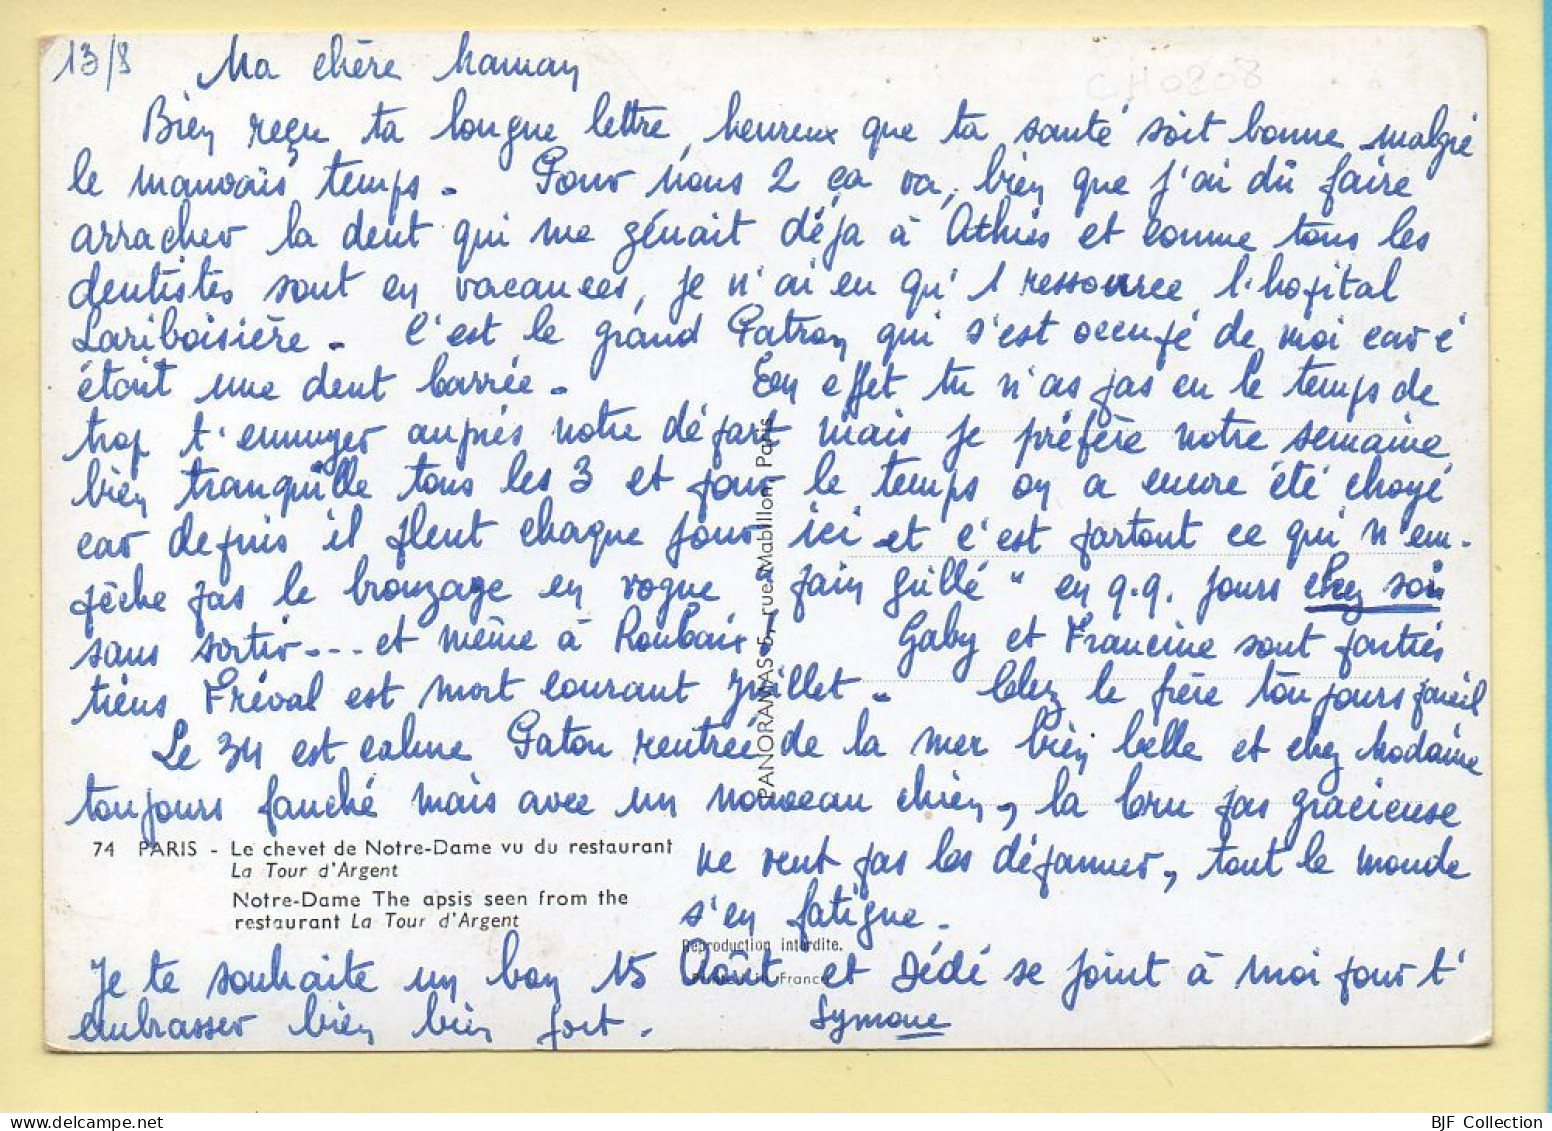 13/8 Ma chère Maman
CH0208
Bien reçu ta longue lettre, heureux que ta santé soit bonne malgré
le mauvais temps. Pour nous 2 ça va, bien que j'ai dû faire
arracher la dent qui me gênait déja à Athies et comme tous les
dentistes sont en vacances, je n'ai eu qu' 1 ressource l'hopital
Lariboisière. C'est le grand Patron qui s'est occupé de moi car c'
était une dent barrée. En effet tu n'as pas eu le temps de
trop t'ennuyer auprès notre départ mais je préfère notre semaine
bien tranquille tous les 3 et pour le temps on a encore été choyé
car depuis il pleut chaque jour ici et c'est partout ce qui n'em-
pêche pas le bronzage en vogue "pain grillé" en q.q. jours chez soi
sans sortir... et même à Roubaix! Gaby et Francine sont parties
tiens Fréval est mort courant juillet. Chez le frère toujours pareil
Le 34 est calme Paton rentrée de la mer bien belle et chez Madame
toujours fauché mais avec un nouveau chien, la bru pas gracieuse
ne veut pas les dépanner, tout le monde
s'en fatigue.
74 PARIS - Le chevet de Notre-Dame vu du restaurant
La Tour d'Argent
Notre-Dame The apsis seen from the
restaurant La Tour d'Argent
Reproduction interdite.
Printed in France
PANORAMAS 5, rue Mabillon, Paris
Je te souhaite un bon 15 Août et Dédé se joint à moi pour t'
embrasser bien bien fort. Symone
BJF Collection